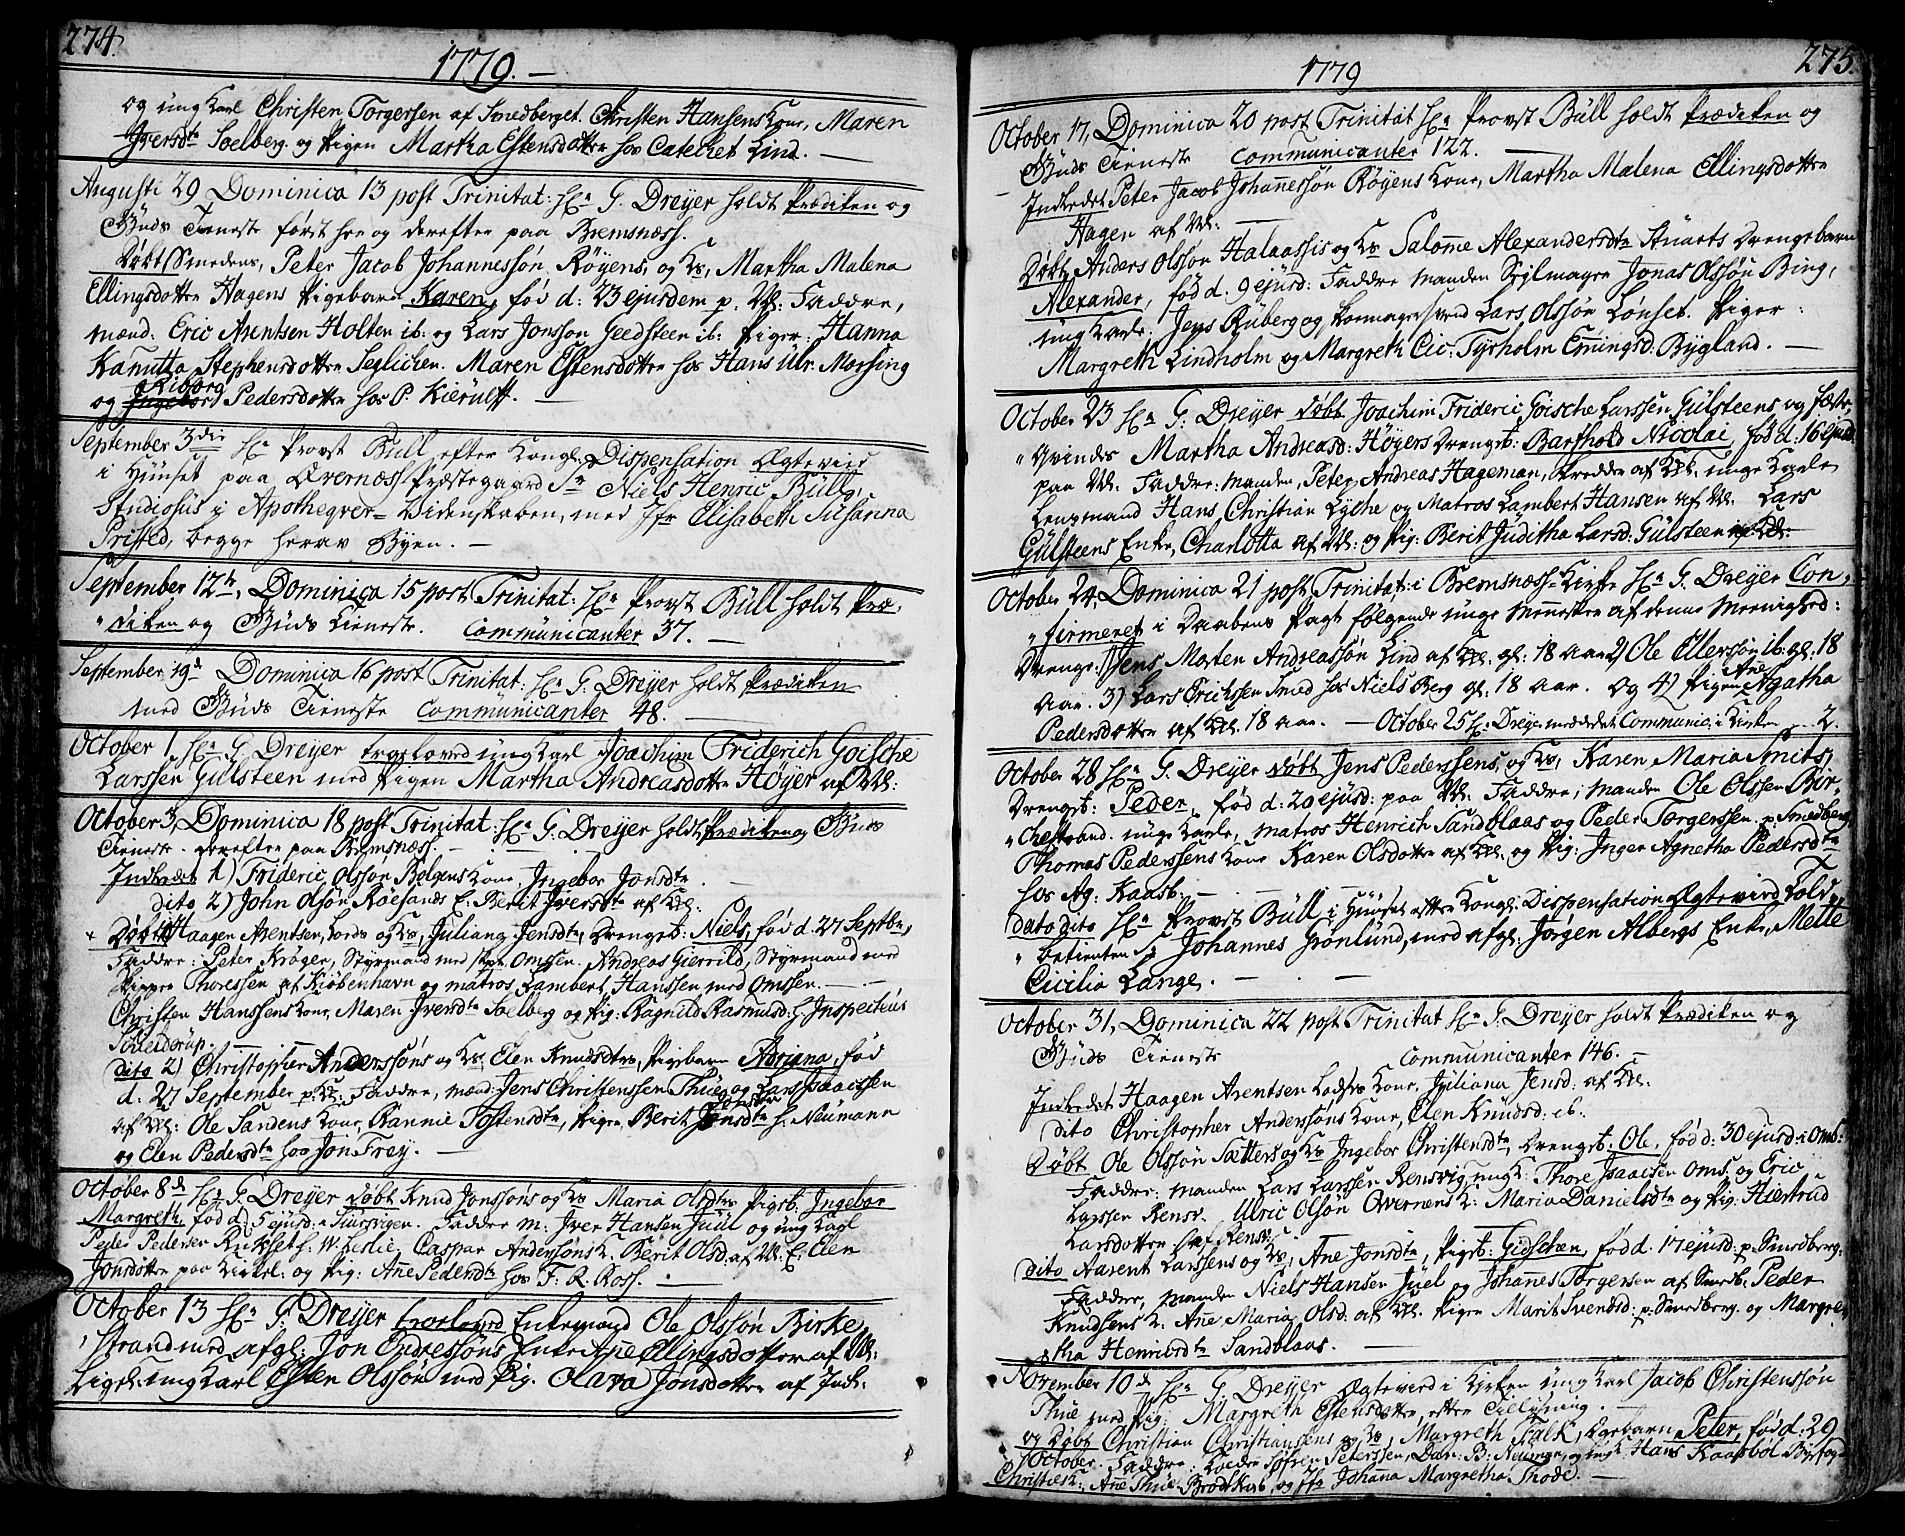 274.
1779.
og ung Karl Christen Torgersen af Smedberget. Christen Hansens Kone, Maren
Iversdtr Soelberg. og Pigen Martha Estensdotter hos Catechet Lind.
Augusti 29 Dominica 13 post Trinitat: Hr G. Dreyer holdt Prædiken og
Guds Tieneste først her og derefter paa Bremsnæss.
Døbt Smedens, Peter Jacob Johannessøn Røyens, og Ks, Martha Malena
Ellingsdotter Hagens Pigebarn Karen, fød d: 23 ejusdem p. Ll: Faddre,
mænd: Eric Arentsen Holten ib: og Lars Jonsson Geedsteen ib: Piger: Hanna
Kanutta Stephensdotter Seglichen. Maren Estensdotter hos Hans Ulr: Morsing
og Riborg Pedersdotter hos P. Kierulff.
September 3die Hr Provst Bull efter Kongl: Dispensation Ægteviid
i Huuset paa Qvernæss Præstegaard Sr Niels Henric Bull,
Studiosus i Apotheqver-Videnskaben, med Jfr Elisabeth Susanna
Pristed, begge her av Byen.
September 12te, Dominica 15 post Trinitat: Hr Provst Bull holdt Præ-
diken og Guds Tieneste. Communicanter 37.
September 19d Dominica 16 post Trinitat: Hr G. Dreyer holdt Prædiken
med Guds Tieneste Communicanter 48.
October 1, Hr G. Dreyer troeloved ung Karl Joachim Friderich Goische
Larssen Gulsteen med Pigen Martha Andreasdotter Høyer af Ll:
October 3, Dominica 18 post Trinitat: Hr G. Dreyer holdt Prædiken og Guds
Tieneste. derefter paa Bremsnæss.
Indledet 1) Frideric Olsson Bolgens Kone Ingebor Jonsdtr.
dito 2) John Olsøn Røesands E. Berit Iversdtr af Kl.
Døbt Haagen Arentsen, Lords og Ks, Juliana Jensdtr, Drengeb: Niels, fød d. 27 Septbr,
Faddre: Peter Krøger, Styrmand med Omssen. Andreas Gierrild, Styrmand med
Skipper Thoressen af Kiøbenhavn og matros Lambert Hanssen med Omssen.
Christen Hanssens Kone, Maren Iversdtr Soelberg og Pig: Ragnild Rasmusd: h. Inspecteur
Sollerderup.
dito 2) Christopher Anderssøns og Ks Elen Knudsdtrs, Pigebarn Adriana, fød
d. 27 September p. Kl: Faddre, mænd: Jens Christenssen Thue og Lars Isaacssen
af Ll: Ole Sandens Kone, Rannie Tostensdtr, Piger Berit Jonsdtr h. Neumann
og Elen Pedersdtr hos Jon Frey.
October 8d Hr G. Dreyer døbt Knud Jonssøns og Ks Maria Olsdtrs Pigeb. Ingebor
Margreth, fød d. 5 ejusd: Tuursvigen. Faddre m: Iver Hansen Juul og ung Karl
Peder Pedersen Rickset h: W. Leslie, Caspar Anderssøns K. Berit Olsd. af Ll. E. Elen
Jonsdotter paa Kirkel: og Pig: Ane Pedersdtr hos F. R. Ross.
October 13 Hr G. Dreyer troeloved Enkemand Ole Olssøn Birke,
strand med afgl: Jon Endressøns Enke Ane Ellingsdotter af Ll:
Ligel: ung Karl Esten Olssøn med Pig. Olava Jonsdotter af Indl:
275.
1779
October 17, Dominica 20 post Trinitat Hr Provst Bull holdt Prædiken og
Guds Tieneste Communicanter 122.
Indledet Peter Jacob Johannessøn Røyens Kone, Martha Malena Ellingsdotter
Hagen af Ll:
Døbt Anders Olsson Halaassis og Ks Salome Alexandersdtr Stuarts Drengebarn
Alexander, fød d. 9 ejusd: Faddre manden Sejlmager Jonas Olssøn Bing,
ung Karle. Jens Ruberg og Skomagersvend Lars Olssøn Lønset. Piger:
Margreth Lindholm og Margreth Cic: Tyrholm Emingsd. Bygland.
October 23 Hr G. Dreyer døbt Joachim Frideric Goische Larssen Gulsteens og Fæste,
Qvindes Martha Andreasd: Høyers Drengeb: Barthold Nicolai, fød d: 16 ejusd:
paa Ll. Faddre: manden, Peter Andreas Hageman, Skrædder af Kl. unge Karle
Leuymand Hans Christian Lyche og Matros Lambert Hansen af Ll. Lars
Gulsteens Enke, Charlotta af Ll: og Pig: Berit Juditha Larsd: Gulsteen
October 24, Dominica 21 post Trinitat: i Bremsnæss-Kirke Hr G. Dreyer Con-
firmeret i Daabens Pagt følgende unge Mennesker af denne Meenighed:
Drenge: 1) Jens Morten Andreassøn Lind af Kl. gl: 18 aar 2) Ole Ellerssøn ib. gl: 18
Aar. 3) Lars Erichssen Smed hos Niels Berg gl: 18 aar. og 4) Pigen Ane Agatha
Pedersdotter af Kl. 18 aar. October 25 Hr Dreyer meddeelt Communic: i Kirken 2.
October 28 Hr G. Dreyer døbt Jens Pederssens, og Ks, Karen Maria Smits,
Drengeb: Peder, fød d: 20 ejusd: paa Ll: Faddre, manden Ole Olssen Bir-
chestrand. unge Karle, matros Henrich Sandblaas og Peder Torgerssen p. Smedberg,
Thomas Pederssens Kone Karen Olsdotter af Kl. og Pig: Inger Agnetha Pedersdtr
hos Ag: Kaasb:
dato dito Hr Provst Bull i Huuset efter Kongl. Dispensation Ægteviid Told-
betienten Sr Johannes Grønlund, med afgl: Jørgen Albergs Enke, Mette
Cicilia Lange.
October 31, Dominica 22 post Trinitat Hr G. Dreyer holdt Prædiken og
Guds Tieneste Communicanter 146.
Indledet Haagen Arentsen Lods Kone, Juliana Jensd: af Kl.
dito Christopher Anderssøns Kone, Elen Knudsd: ib:
Døbt Ole Olssøn Sætters og Ks Ingebor Christensdtr, Drengeb. Ole, fød d: 30 ejusd: i Omb:
Faddre: manden Lars Larssen Rensvig, ung K: Thore Isaacsen Oms. og Eric
Larssen Rensv. Ulric Olsøn Qvernens K: Maria Danielsdtr og Pig: Hiertrud
Larsdotter af Rensv.
dito Aarent Larssens og Ks, Ane Jonsdtr, Pigeb: Gidsken, fød d. 17 ejusd: p. Smedberg:
Faddre, manden Niels Hansen Juel og Johannes Torgersen af Smedb. Peder
Knudsens K: Ane Maria Olsd: af Kl. Piger Marit Svendsd: p. Smedberg. og Margre-
tha Henricsdtr Sandblaas.
November 10d Hr G. Dreyer Ægteviid i Kirken ung Karl Jacob Christenssøn
Thue med Pig: Margreth Estensdotter, efter Tillysning.
og Døbt Christian Christianssens og Ks, Margreth Falk, Drengebarn Peter, fød d: 29
October. Faddre: Søfren Peterssen, Dan: B: Neuman, og ung K Hans Kaasbøl
Christie K: Ane Thue og Jfr Johanna Margretha Thode.